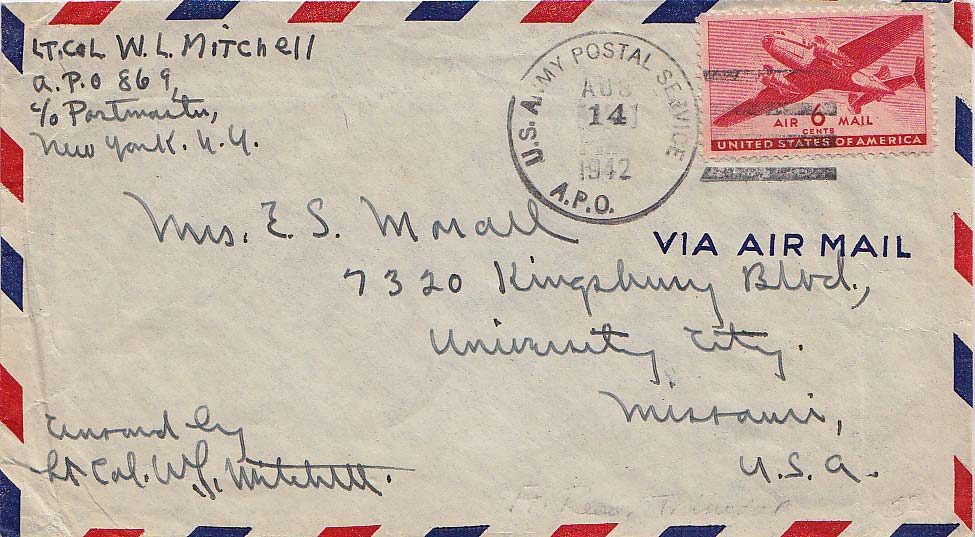 LT. COL W. L. Mitchell
A.P.O 869,
c/o Postmaster,
New York. N.Y.
U.S. ARMY POSTAL SERVICE
AUG
14
1942
A.P.O.
AIR 6 MAIL
CENTS
UNITED STATES OF AMERICA
Mrs. E. S. Morall
VIA AIR MAIL
7320 Kingsbury Blvd.,
University City.
Missouri,
U.S.A.
Censored by
Lt Col. W. L. Mitchell.
Trinidad